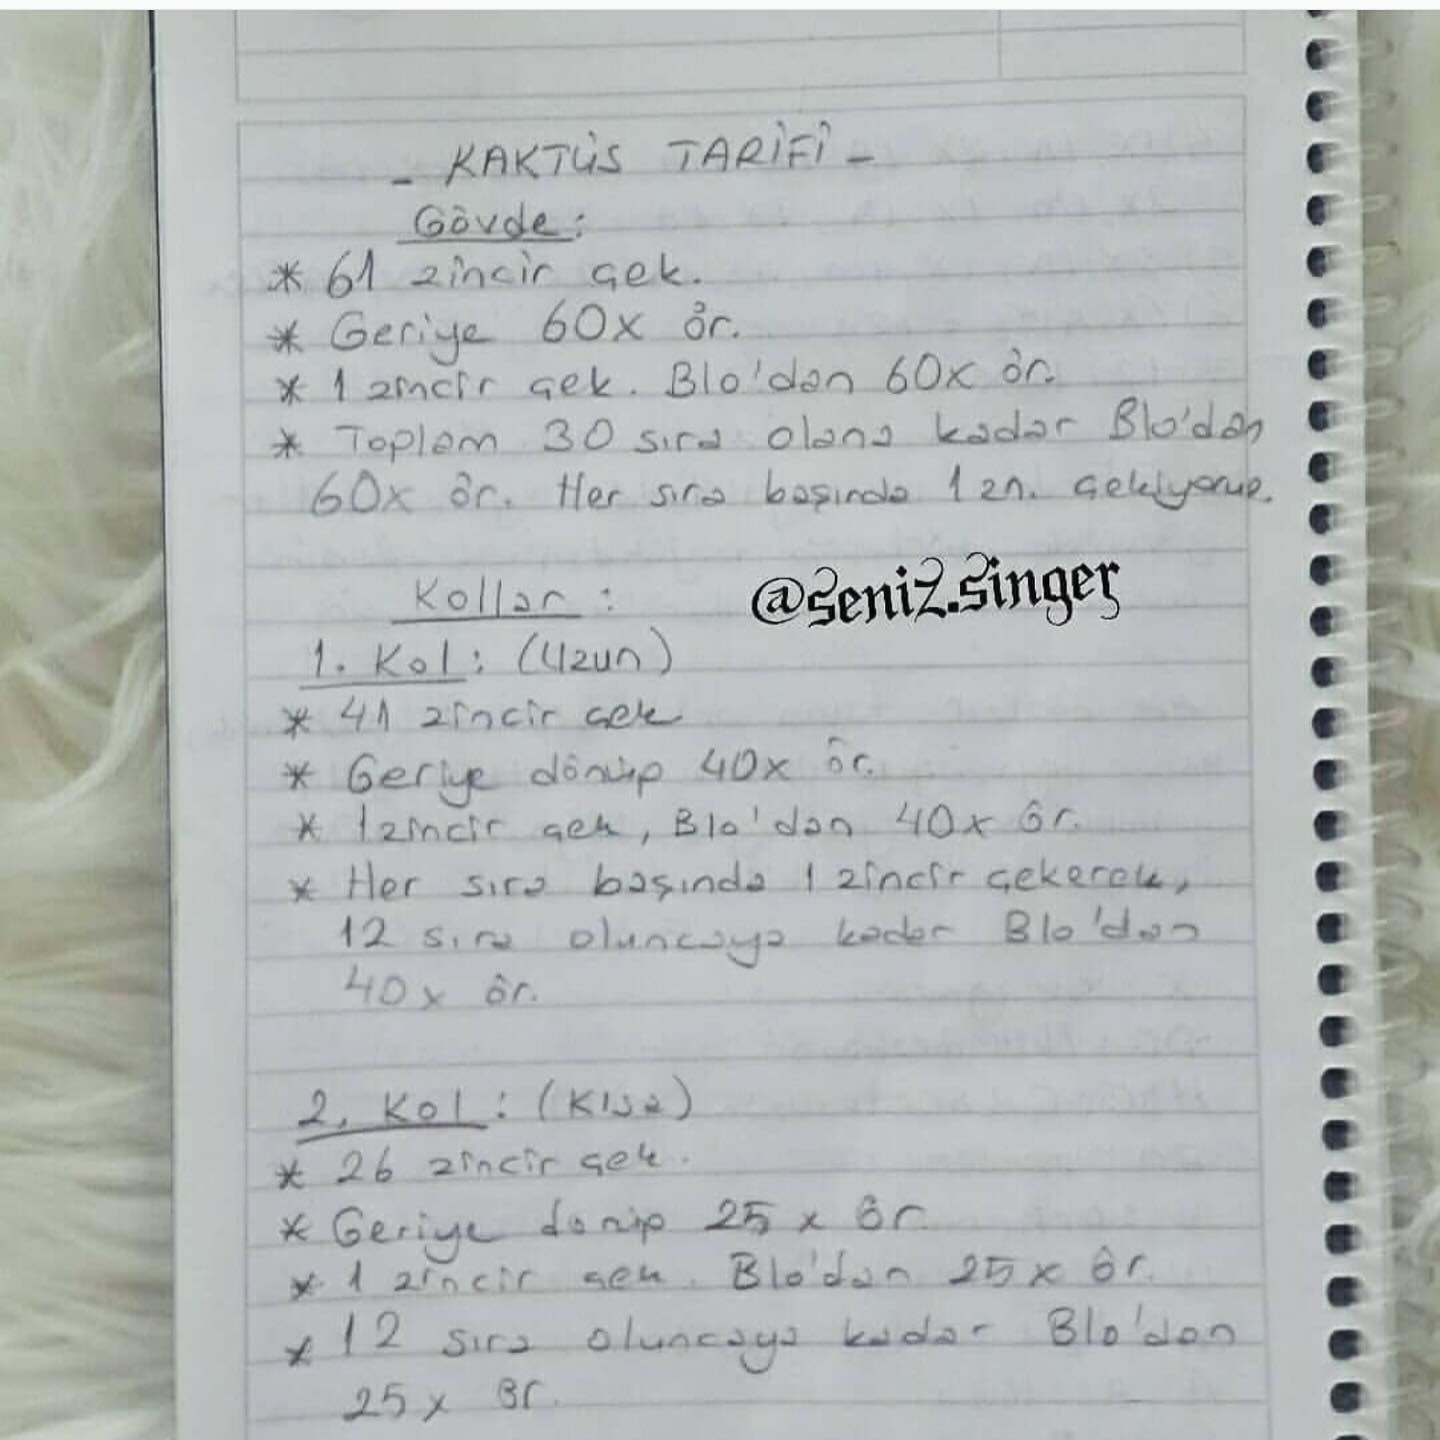 - KAKTÜS TARİFİ -
Gövde:
* 61 zincir çek.
* Geriye 60x ör.
* 1 zincir çek. Blo'dan 60x ör.
* Toplam 30 sıra olana kadar Blo'dan
60x ör. Her sıra başında 1 zn. çekiyoruz.
Kollar:
@seniz.singer
1. Kol: (Uzun)
* 41 zincir çek
* Geriye dönüp 40x ör.
* 1 zincir çek, Blo'dan 40x ör.
* Her sıra başında 1 zincir çekerek,
12 sıra oluncaya kadar Blo'dan
40x ör.
2. Kol: (Kısa)
* 26 zincir çek.
* Geriye dönüp 25x ör.
* 1 zincir çek. Blo'dan 25x ör.
* 12 sıra oluncaya kadar Blo'dan
25x ör.